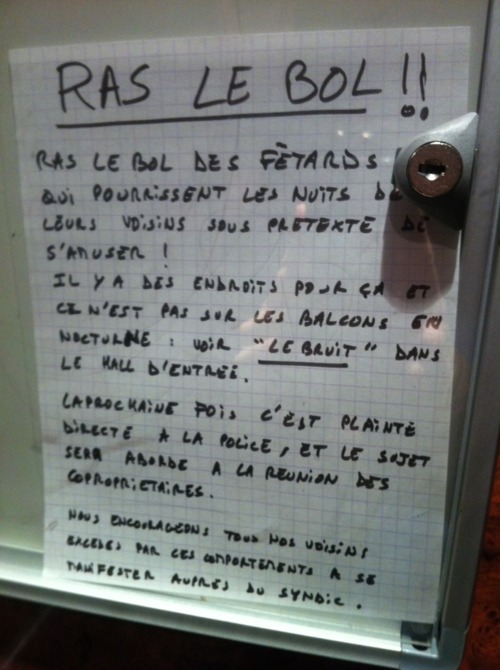 RAS LE BOL !!
RAS LE BOL DES FÊTARDS !
QUI POURRISSENT LES NUITS DE
LEURS VOISINS SOUS PRETEXTE DE
S'AMUSER !
IL Y A DES ENDROITS POUR ÇA ET
CE N'EST PAS SUR LES BALCONS EN
NOCTURNE : VOIR "LE BRUIT" DANS
LE HALL D'ENTRÉE.
LA PROCHAINE FOIS C'EST PLAINTE
DIRECTE A LA POLICE, ET LE SUJET
SERA ABORDE A LA REUNION DES
COPROPRIETAIRES.
NOUS ENCOURAGEONS TOUS NOS VOISINS
EXCEDES PAR CES COMPORTEMENTS A SE
MANIFESTER AUPRES DU SYNDIC.